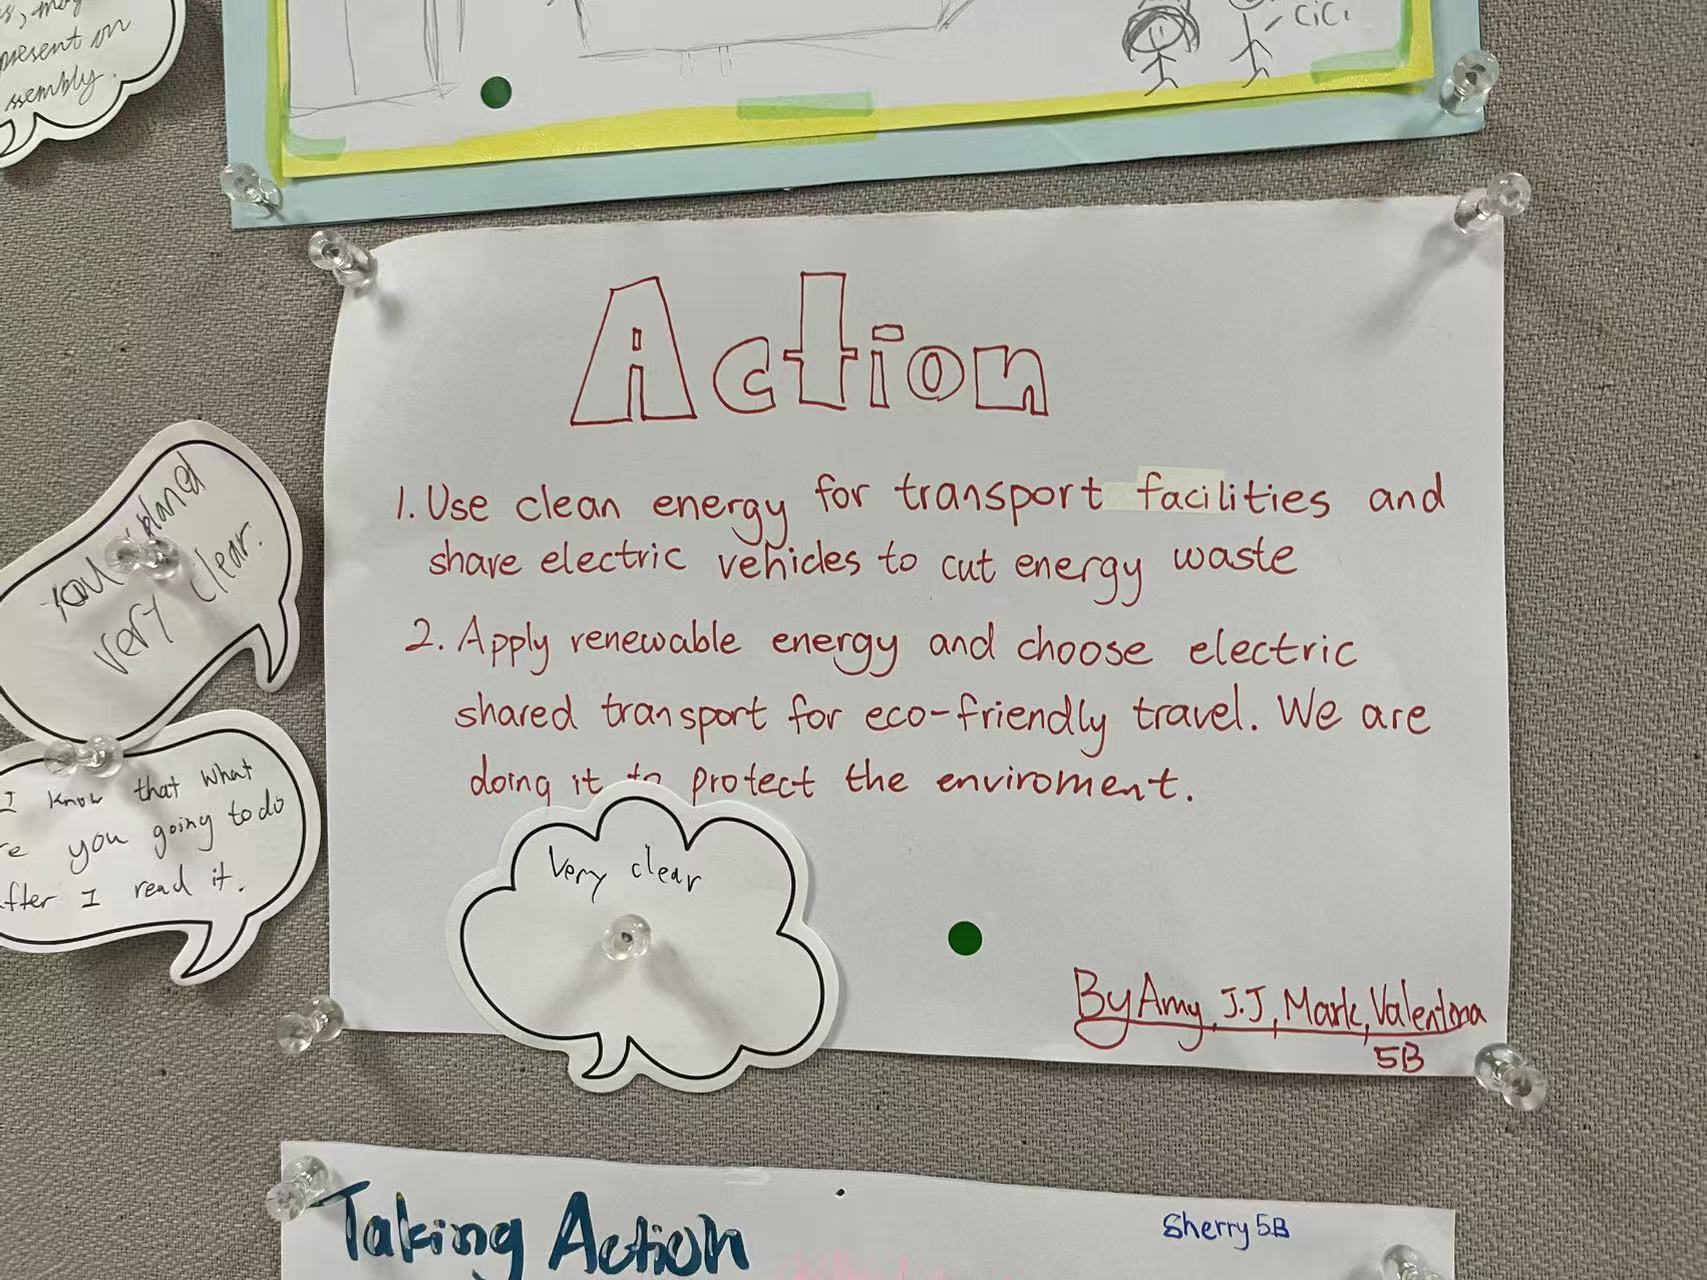 present on
ssembly.
CiCi
Action
1. Use clean energy for transport facilities and
share electric vehicles to cut energy waste
2. Apply renewable energy and choose electric
shared transport for eco-friendly travel. We are
doing it to protect the enviroment.
Very clear
By Amy, J.J, Mark, Valentina
5B
You planed
very clear.
I know that what
re you going to do
after I read it.
Taking Action
Sherry 5B